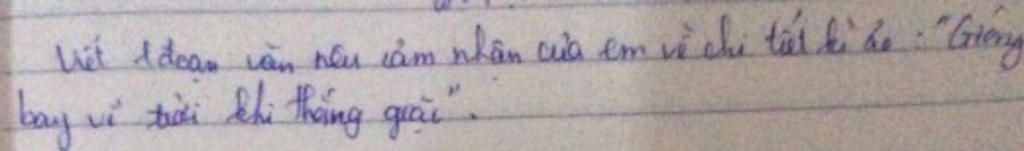 Viết 1 đoạn văn nêu cảm nhận của em về chi tiết kì ảo : "Gióng
bay về trời khi thắng giặc".